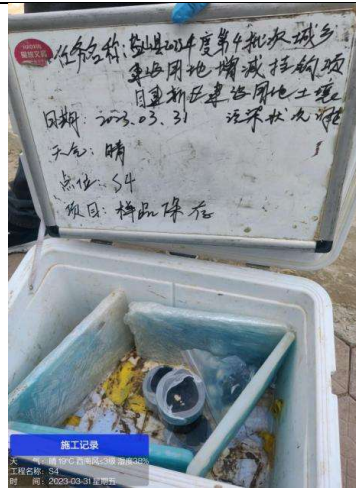 任务名称:盐山县2023年度第4批次城乡
建设用地增减挂钩项
目建新区建设用地土壤
污染状况调查
日期:2023.03.31
天气:晴
点位:S4
项目:样品保存
施工记录
天 气:晴 19℃ 西南风≤3级 湿度38%
工程名称:S4
时 间:2023-03-31 星期五